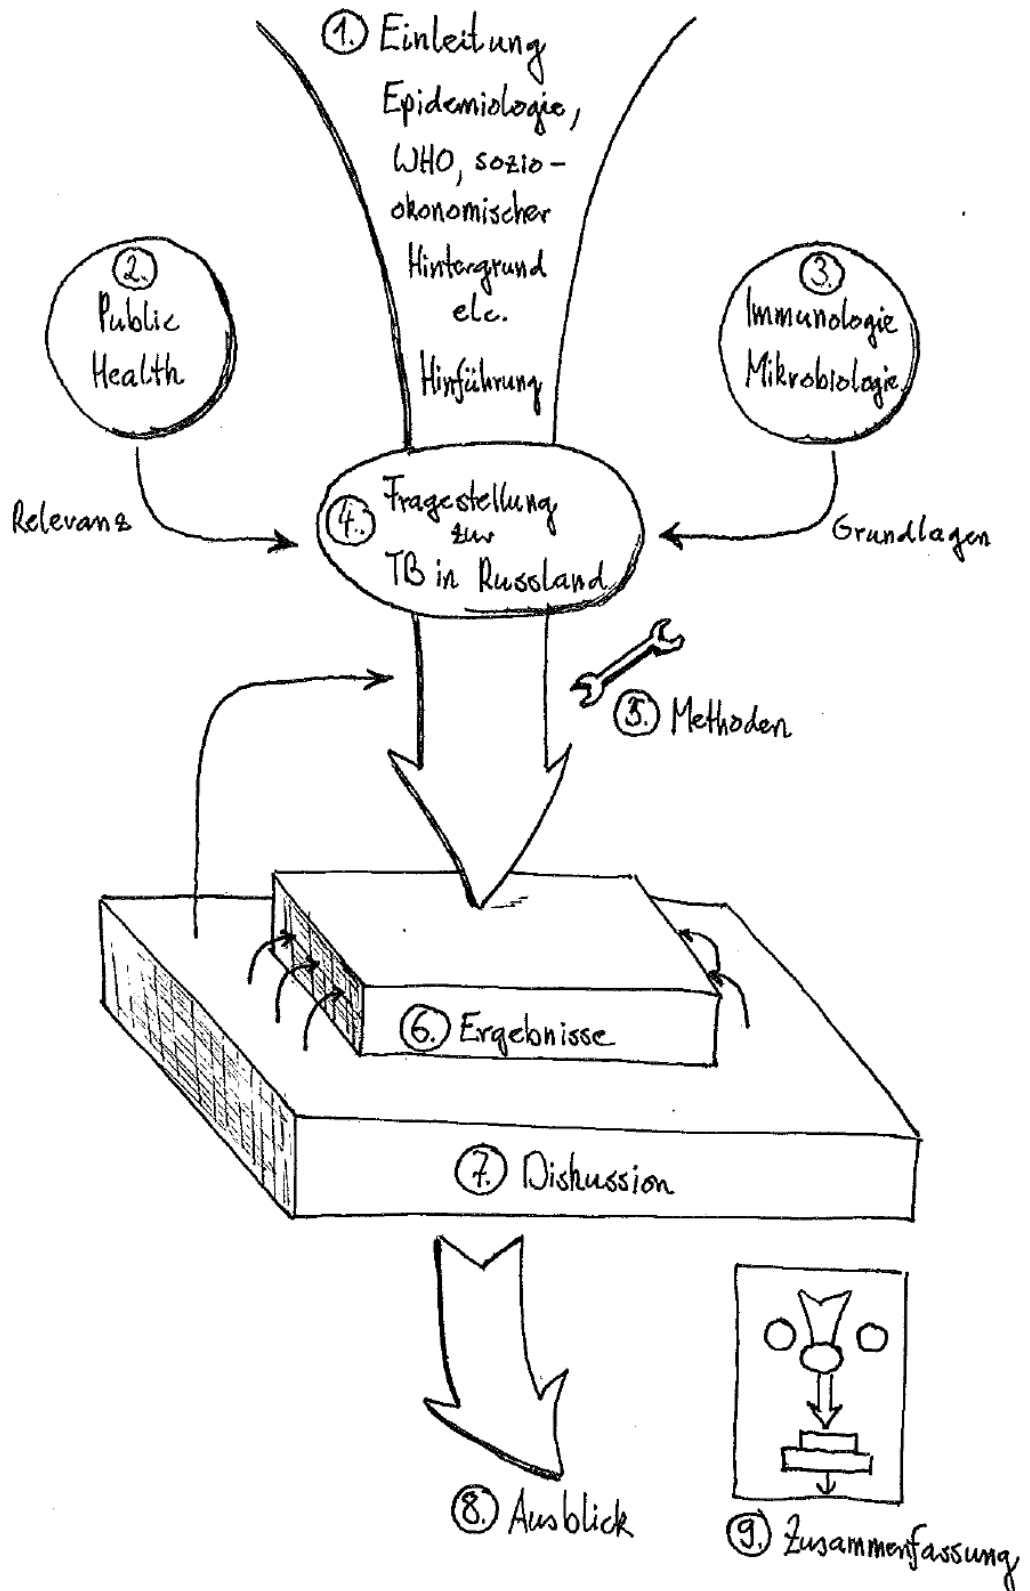 1. Einleitung
Epidemiologie,
WHO, sozio-
ökonomischer
Hintergrund
etc.
Hinführung
2.
Public
Health
3.
Immunologie
Mikrobiologie
Relevanz
4. Fragestellung
zur
TB in Russland
Grundlagen
5. Methoden
6. Ergebnisse
7. Diskussion
8. Ausblick
9. Zusammenfassung